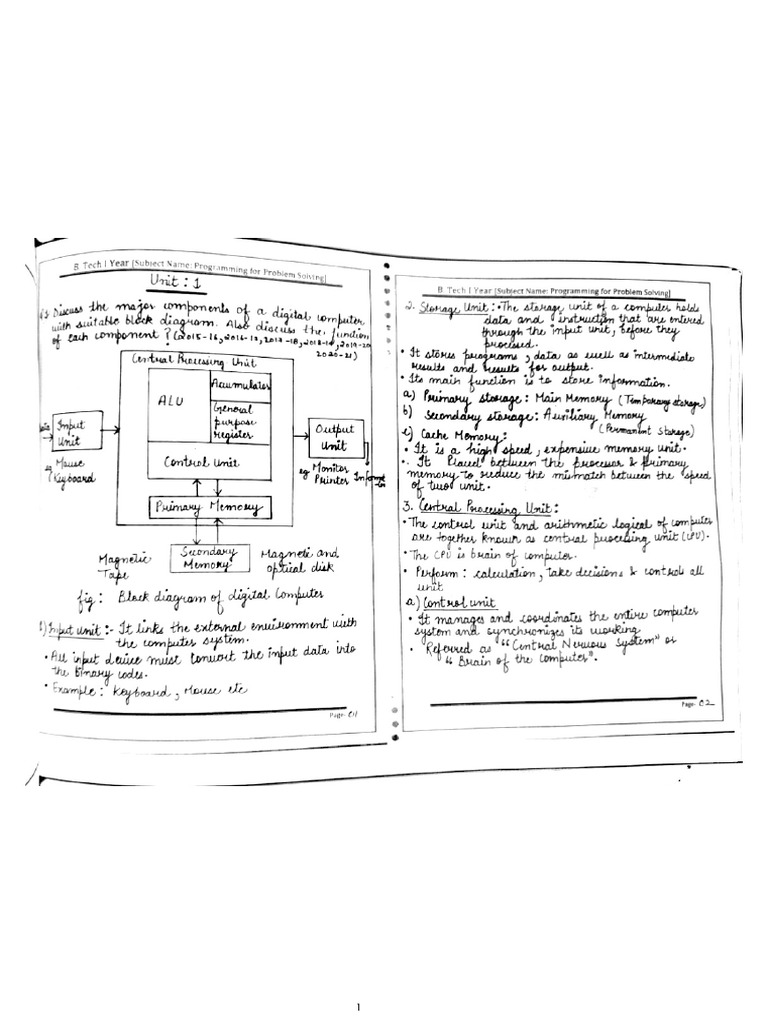 B. Tech I Year [Subject Name: Programming for Problem Solving]
Unit : 1
Discuss the major components of a digital computer
with suitable block diagram. Also discuss the function
of each component ? (2015-16, 2016-17, 2017-18, 2018-19, 2019-20
2020-21)
Central Processing Unit
ALU
Accumulator
General
purpose
register
Control Unit
Input
Unit
eg Mouse
Keyboard
Output
Unit
eg Monitor
Printer
Primary Memory
Secondary
Memory
Magnetic
Tape
Magnetic and
optical disk
fig : Block diagram of digital Computer
1) Input unit :- It links the external environment with
the computer system.
• All input device must convert the input data into
the binary codes.
• Example : Keyboard, Mouse etc
Page- 01
B. Tech I Year [Subject Name: Programming for Problem Solving]
2. Storage Unit : • The storage unit of a computer holds
data and instruction that are entered
through the input unit, before they
processed.
• It stores programs, data as well as intermediate
results and results for output.
• Its main function is to store information.
a) Primary storage : Main Memory (Temporary storage)
b) Secondary storage : Auxiliary Memory
(Permanent Storage)
c) Cache Memory :
• It is a high speed, expensive memory unit.
• It Placed between the processor & primary
memory to reduce the mismatch between the speed
of two unit.
3. Central Processing Unit :
• The control unit and arithmetic logical of computer
are together known as central processing unit (CPU).
• The CPU is brain of computer.
• Perform : calculation, take decisions & controls all
unit
a) Control unit
• It manages and coordinates the entire computer
system and synchronizes its working
• Referred as "Central Nervous System" or
"Brain of the Computer".
Page- 02
1